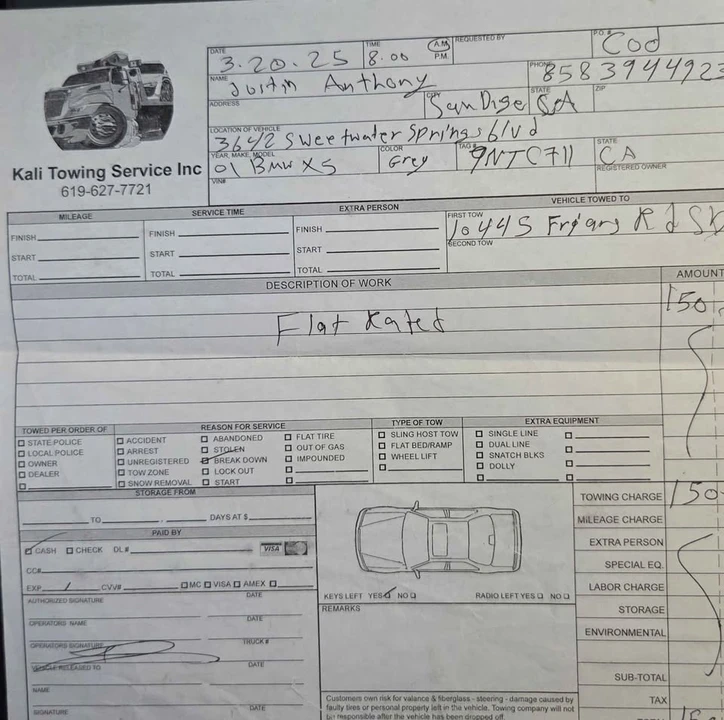 DATE 3.20.25 TIME 8.00 A.M. P.M. REQUESTED BY P.O.# Cod
NAME Justin Anthony PHONE 8583944923
ADDRESS CITY San Dige STATE CA ZIP
LOCATION OF VEHICLE 3642 Sweetwater Springs blvd
YEAR, MAKE, MODEL 01 BMW X5 COLOR Grey TAG# 9NTC711 STATE CA
VIN# REGISTERED OWNER
Kali Towing Service Inc
619-627-7721
MILEAGE SERVICE TIME EXTRA PERSON VEHICLE TOWED TO
FINISH FINISH FINISH FIRST TOW 10445 Friars Rd
START START START SECOND TOW
TOTAL TOTAL TOTAL
DESCRIPTION OF WORK AMOUNT
150
Flat Rated
TOWED PER ORDER OF REASON FOR SERVICE TYPE OF TOW EXTRA EQUIPMENT
STATE POLICE ACCIDENT ABANDONED FLAT TIRE SLING HOST TOW SINGLE LINE
LOCAL POLICE ARREST STOLEN OUT OF GAS FLAT BED/RAMP DUAL LINE
OWNER UNREGISTERED BREAK DOWN IMPOUNDED WHEEL LIFT SNATCH BLKS
DEALER TOW ZONE LOCK OUT DOLLY
SNOW REMOVAL START
STORAGE FROM
TO DAYS AT $
PAID BY
CASH CHECK DL# VISA
CC#
EXP / CVV# MC VISA AMEX
AUTHORIZED SIGNATURE DATE
OPERATORS NAME DATE
OPERATORS SIGNATURE TRUCK#
VEHICLE RELEASED TO DATE
NAME
SIGNATURE DATE
KEYS LEFT YES NO RADIO LEFT YES NO
REMARKS
Customers own risk for valance & fiberglass - steering - damage caused by
faulty tires or personal property left in the vehicle. Towing company will not
be responsible after the vehicle has been dropped off.
TOWING CHARGE 150
MILEAGE CHARGE
EXTRA PERSON
SPECIAL EQ.
LABOR CHARGE
STORAGE
ENVIRONMENTAL
SUB-TOTAL
TAX